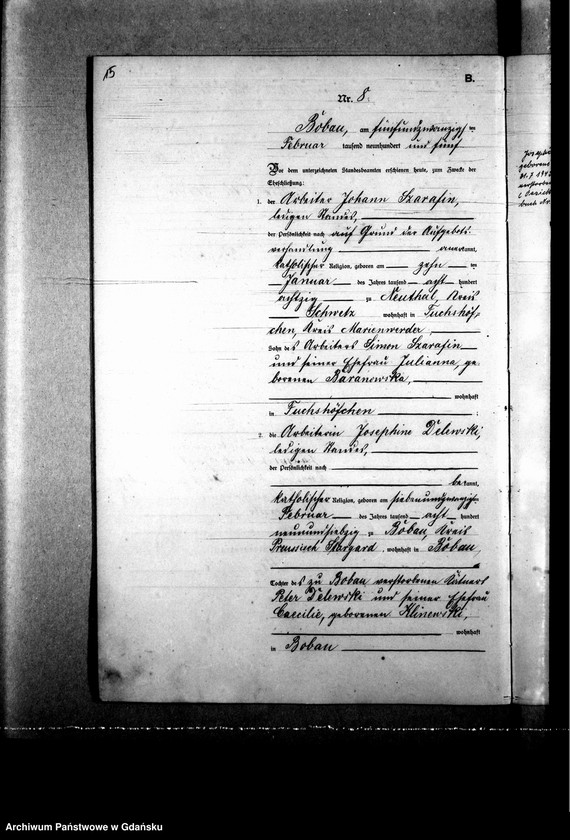 15
B.
Nr. 8.
Bobau, am fünfundzwanzigsten
Februar tausend neunhundert und fünf
Vor dem unterzeichneten Standesbeamten erschienen heute, zum Zwecke der
Eheschließung:
1. der Arbeiter Johann Szarafin,
ledigen Standes,
der Persönlichkeit nach auf Grund der Aufgebots-
verhandlung anerkannt,
katholischer Religion, geboren am zehn ten
Januar des Jahres tausend acht hundert
achtzig zu Neuthal, Kreis
Schwetz wohnhaft in Fuchshöf-
chen, Kreis Marienwerder
Sohn des Arbeiters Simon Szarafin
und seiner Ehefrau Julianna, ge-
borenen Baranowska,
wohnhaft
in Fuchshöfchen ;
2. die Arbeiterin Josephine Delewski,
ledigen Standes,
der Persönlichkeit nach
bekannt,
katholischer Religion, geboren am siebenundzwanzigsten
Februar des Jahres tausend acht hundert
neunundsiebzig zu Bobau, Kreis
Preussisch Stargard, wohnhaft in Bobau,
Tochter des zu Bobau verstorbenen Kätners
Peter Delewski und seiner Ehefrau
Caecilie, geborenen Klinewski,
wohnhaft
in Bobau
Josephine
geborene
Archiwum Państwowe w Gdańsku